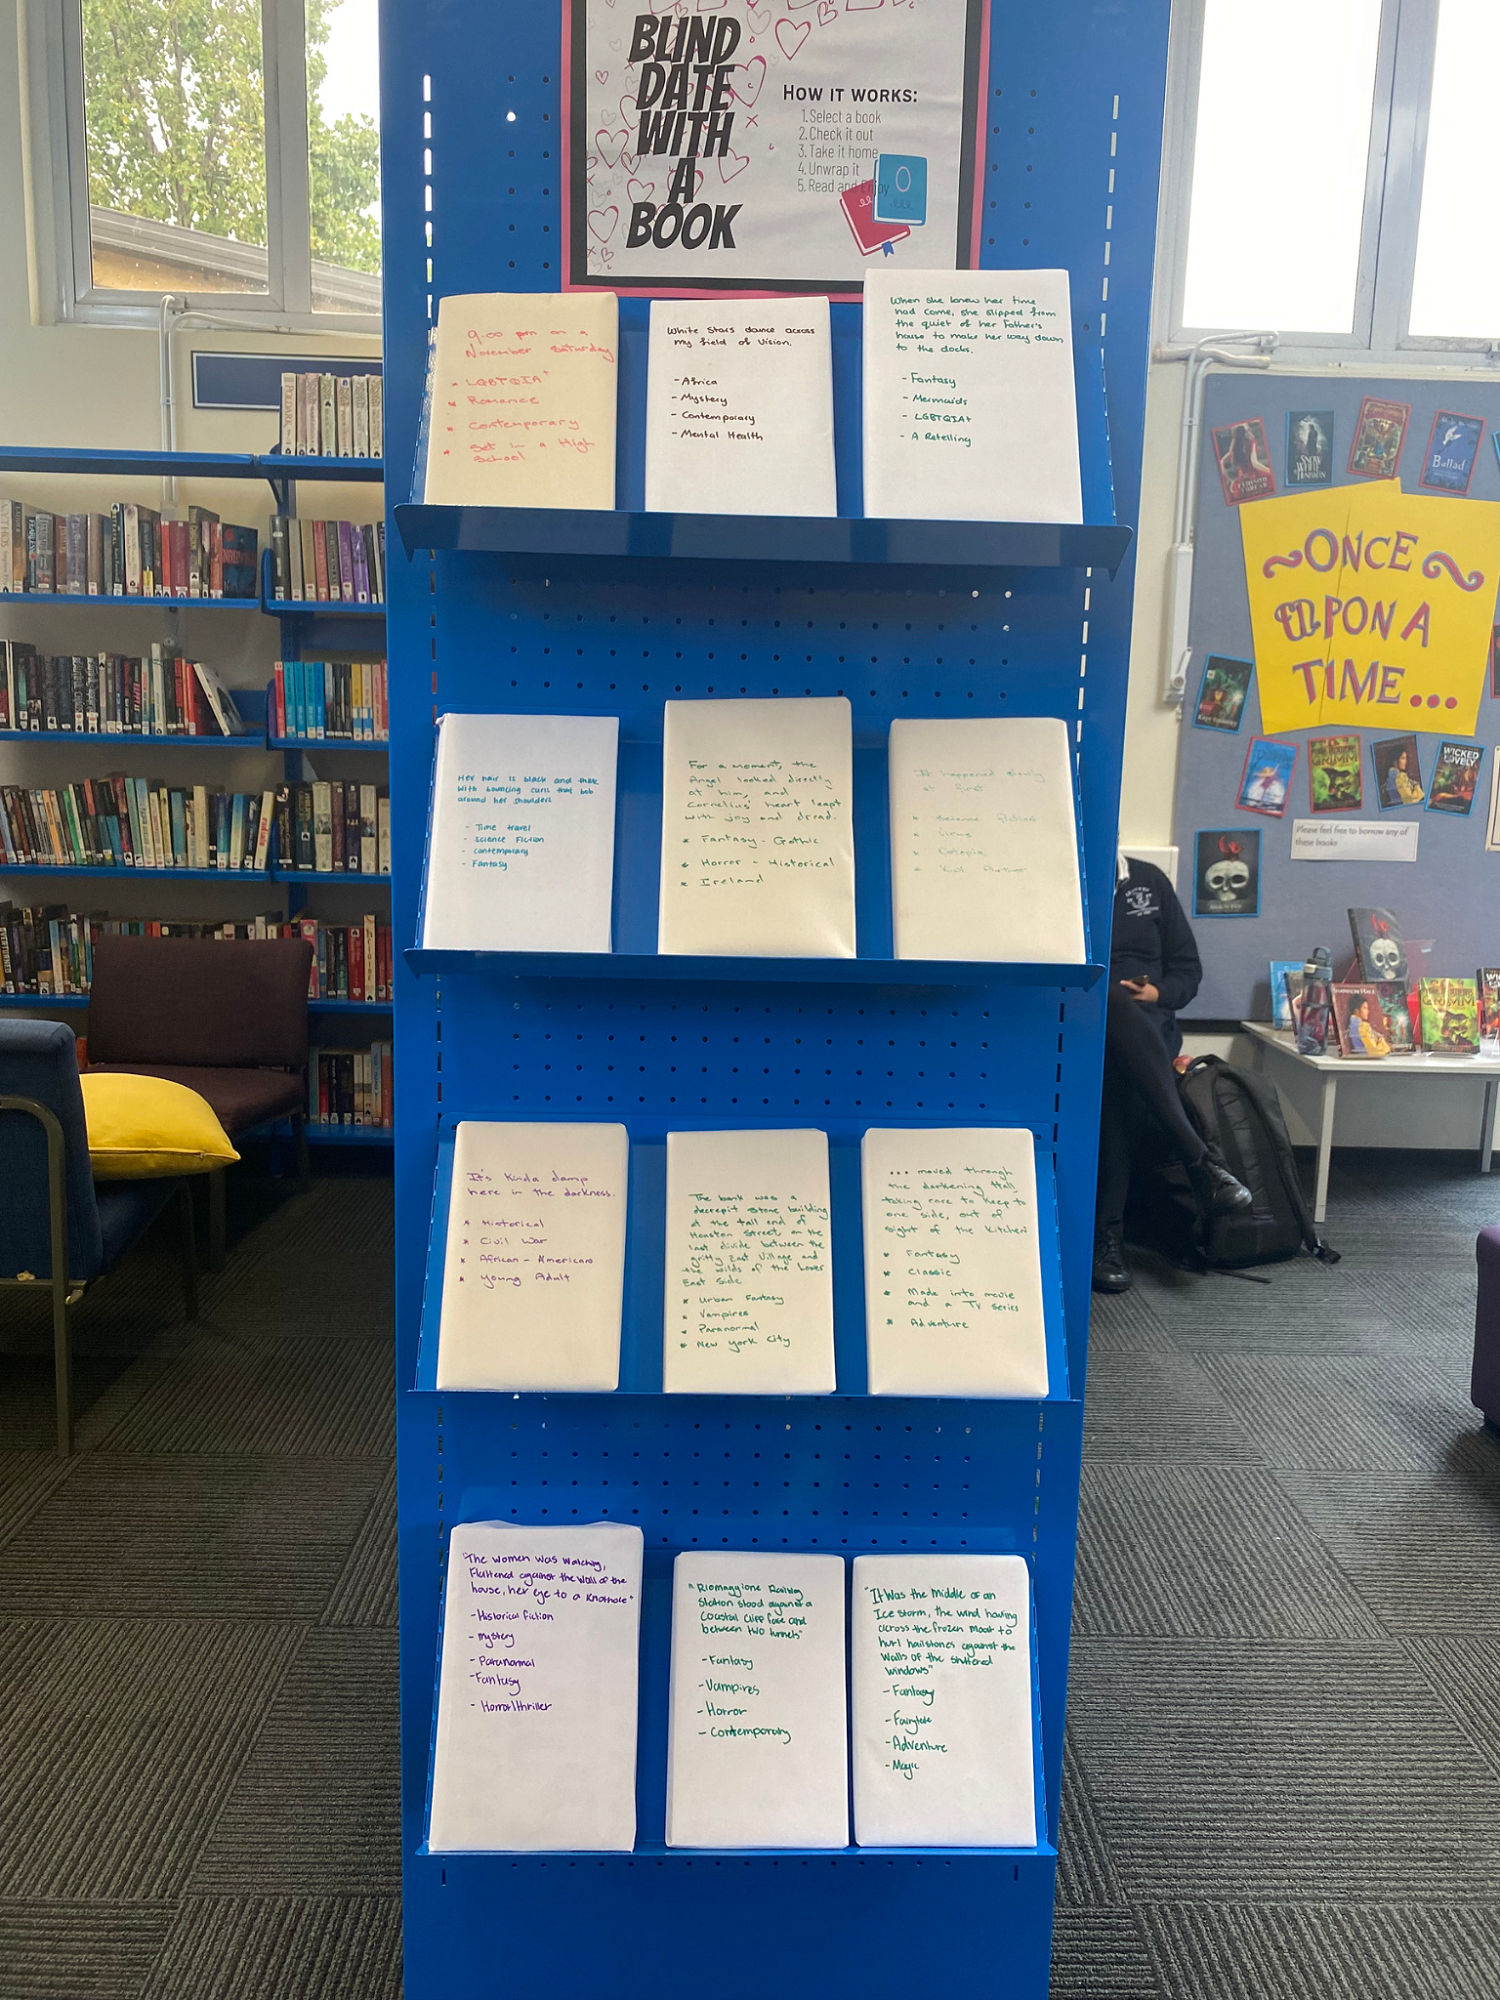 BLIND
DATE
WITH
A
BOOK
HOW IT WORKS:
1. Select a book
2. Check it out
3. Take it home
4. Unwrap it
5. Read and Enjoy
9.00 pm on a
November Saturday
* LGBTQIA+
* Romance
* Contemporary
* Set in a High
School
White Stars dance across
my field of vision.
- Africa
- Mystery
- Contemporary
- Mental Health
When she knew her time
had come, she slipped from
the quiet of her Father's
house to make her way down
to the docks.
- Fantasy
- Mermaids
- LGBTQIA+
- A Retelling
Her hair is black and thick
with bouncing curls that bob
around her shoulders
- Time travel
- Science Fiction
- Contemporary
- Fantasy
For a moment, the
Angel looked directly
at him, and
Cornelius' heart leapt
with joy and dread.
* Fantasy - Gothic
* Horror - Historical
* Ireland
It happened slowly
at first
* Science Fiction
* Virus
* Author
It's kinda damp
here in the darkness.
* Historical
* Civil War
* African - Americans
* Young Adult
The bank was a
decrepit stone building
at the tail end of
Houston Street, on the
last divide between the
gritty East Village and
the wilds of the Lower
East side
* Urban Fantasy
* Vampires
* Paranormal
* New York City
... moved through
the darkening Hall,
taking care to keep to
one side, out of
sight of the kitchen
* Fantasy
* Classic
* Made into movie
and a TV series
* Adventure
"The women was watching,
Flattened against the wall of the
house, her eye to a knothole"
- Historical fiction
- mystery
- Paranormal
- Fantasy
- Horror/thriller
"Riomaggiore Railway
Station stood against a
coastal cliff face and
between two tunnels"
- Fantasy
- Vampires
- Horror
- Contemporary
"It was the middle of an
Ice storm, the wind howling
across the frozen moat to
hurl hailstones against the
walls of the shuttered
windows"
- Fantasy
- Fairytale
- Adventure
- Magic
~ONCE~
UPON A
TIME...
Ballad
SNOW
WHITE
GRIMM
WICKED
LOVELY
Please feel free to borrow any of
these books
GRIMM